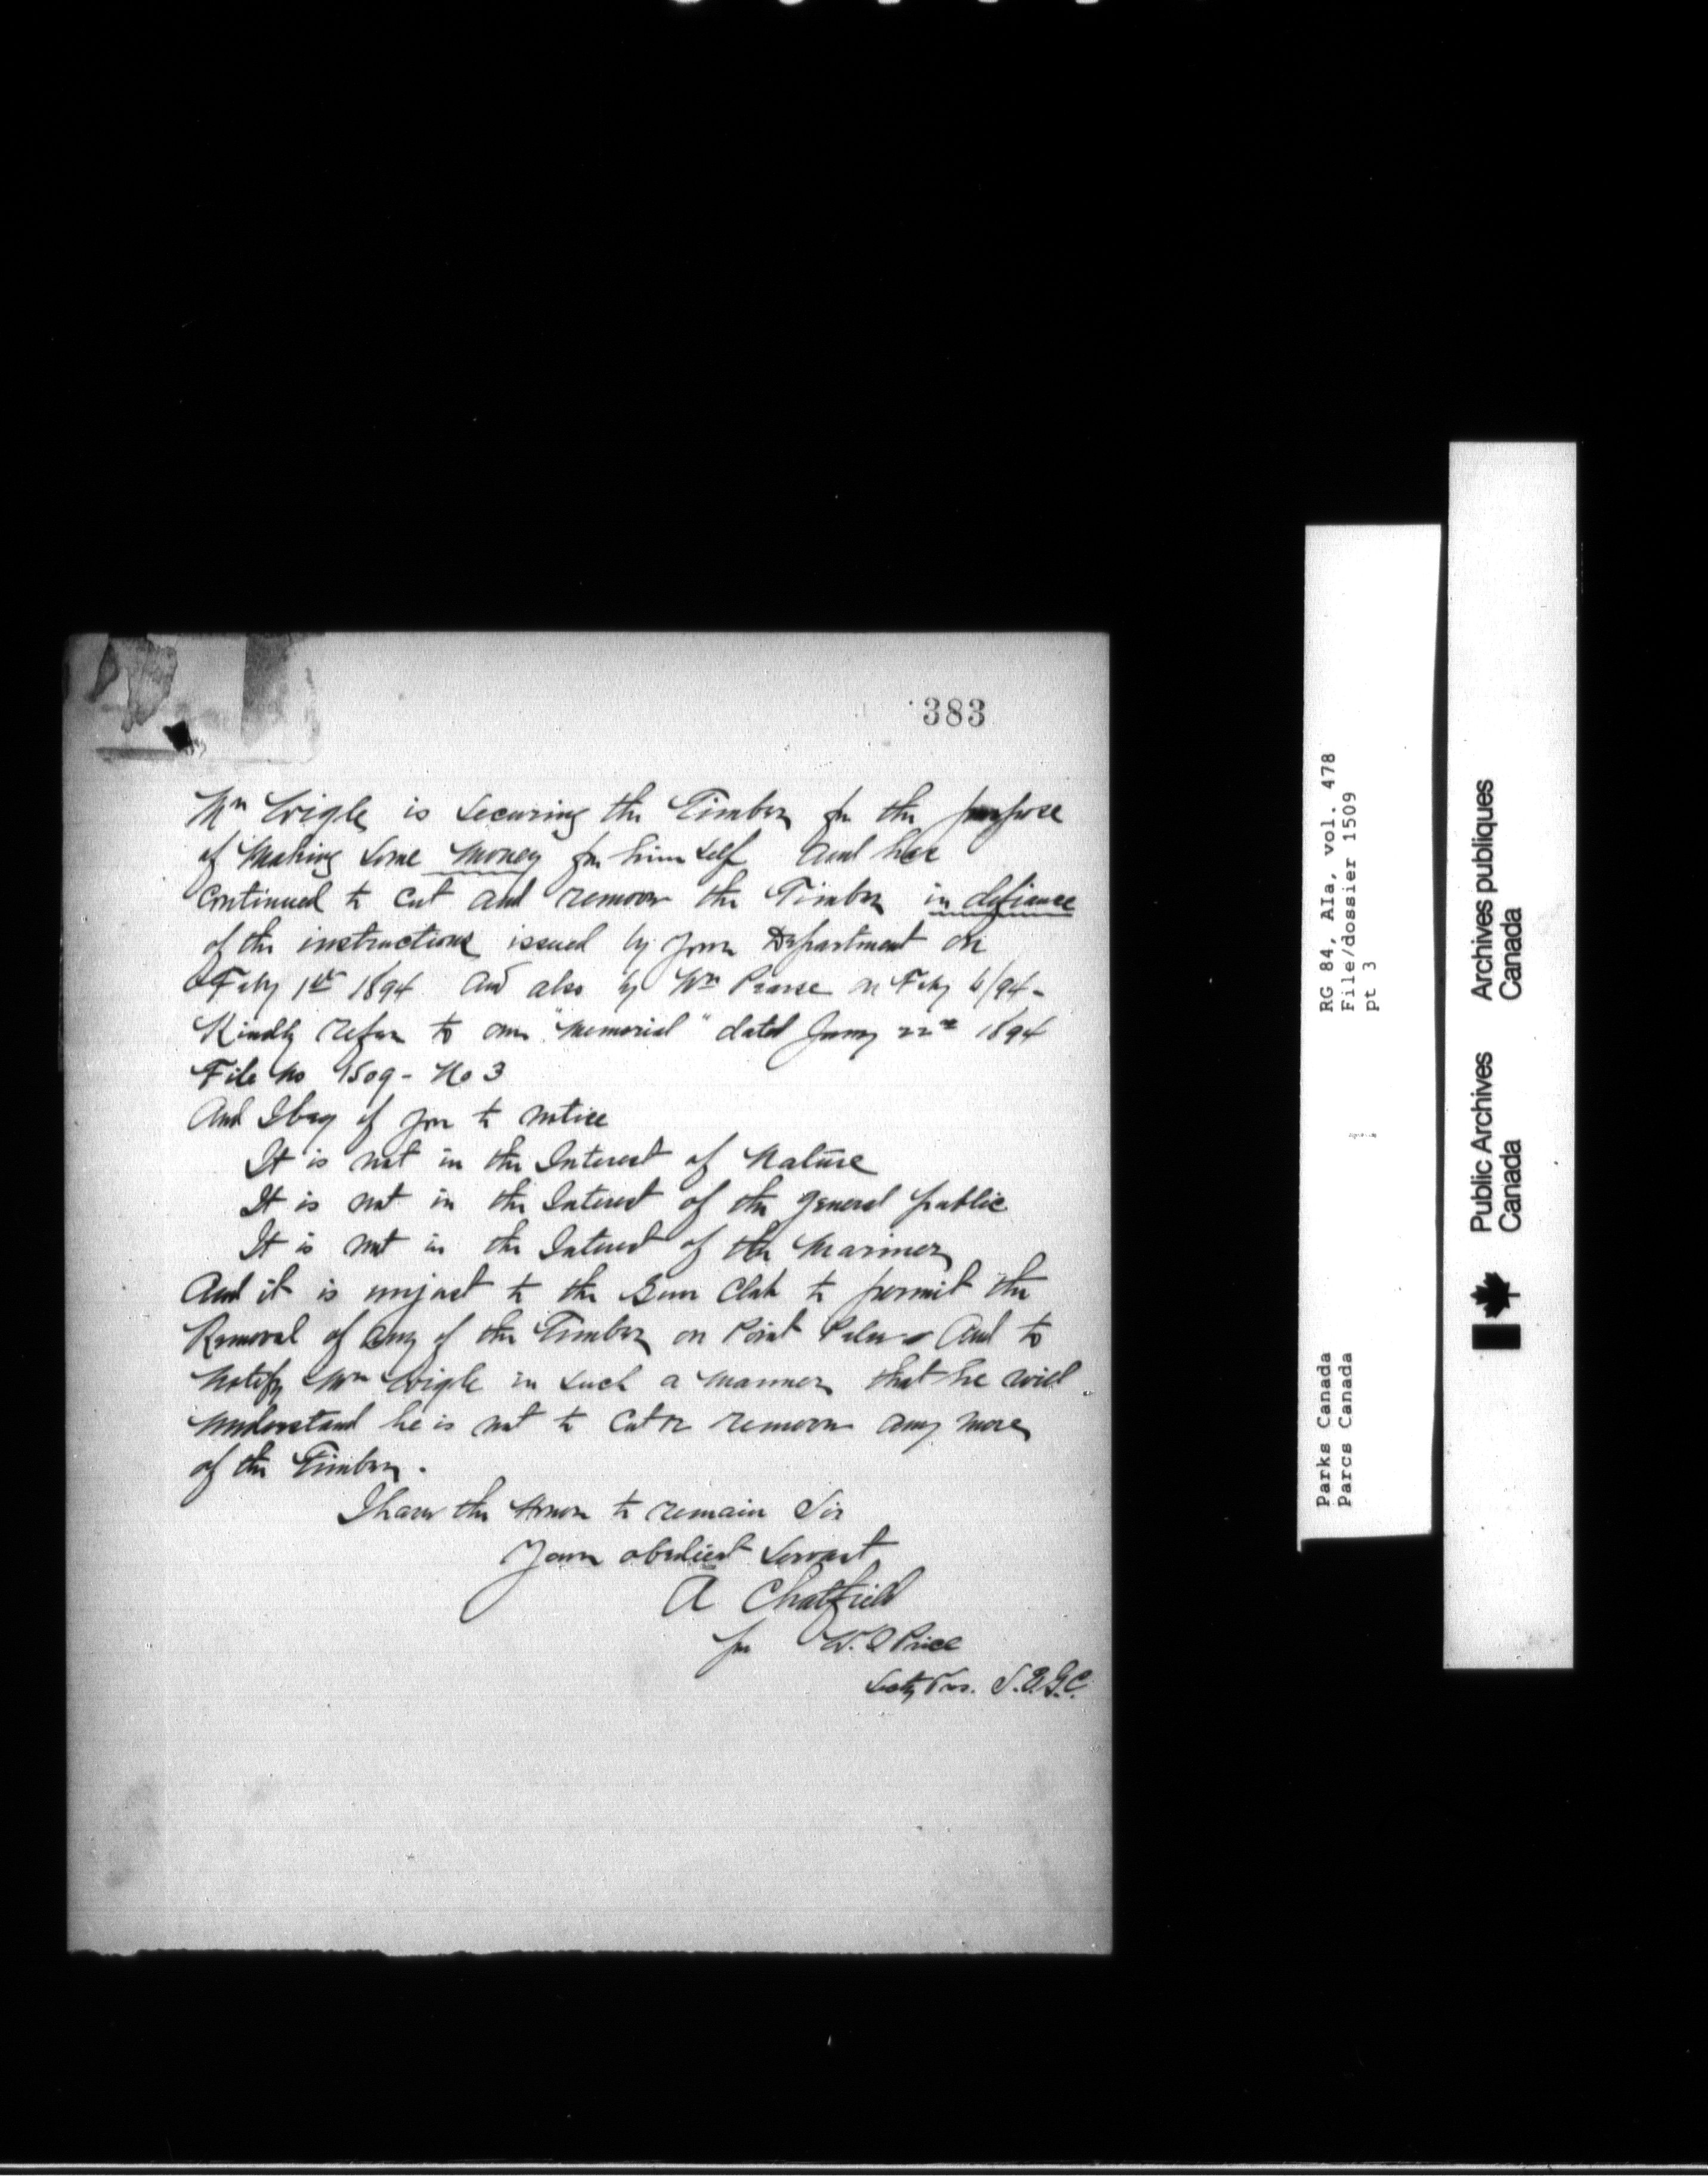 383
Mr Wigle is securing the Timber for the purpose
of making some money for himself and has
continued to cut and remove the Timber in defiance
of the instructions issued by your Department on
Feby 1st 1894 and also by Wm Pearse on Feby 6/94-
Kindly refer to our "Memorial" dated Jany 22nd 1894
File No 1509 - No 3
And I beg of you to notice
It is not in the Interest of Nature
It is not in the Interest of the general public
It is not in the Interest of the Mariner
And it is unjust to the Gun Club to permit the
Removal of any of the Timber on Point Pelee And to
Notify Mr Wigle in such a manner that he will
understand he is not to cut or remove any more
of the Timber.
I have the Honor to remain Sir
Your obedient Servant
A Chatfield
for W. Q Price
Secty Trs. S.E.G.C.
RG 84, AIa, vol. 478
File/dossier 1509
pt 3
Parks Canada
Parcs Canada
Public Archives
Canada
Archives publiques
Canada